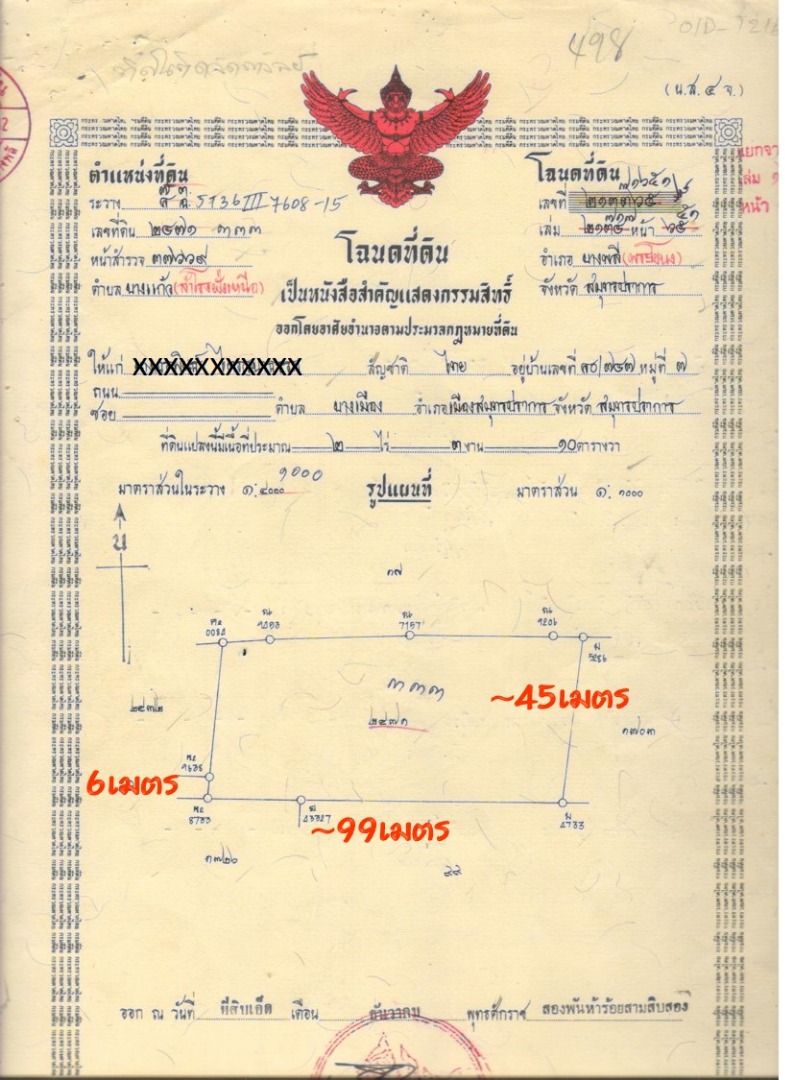 498
(น.ส. ๔ จ.)
ตำแหน่งที่ดิน
ระวาง 5136 III 7608-15
เลขที่ดิน ๒๔๗๑ ๓๓๓
หน้าสำรวจ ๓๗๖๖๙
ตำบล บางแก้ว (สำโรงฝั่งเหนือ)
โฉนดที่ดิน
เลขที่
เล่ม หน้า
อำเภอ บางพลี (พระโขนง)
จังหวัด สมุทรปราการ
แยกจาก
เล่ม
หน้า
โฉนดที่ดิน
เป็นหนังสือสำคัญแสดงกรรมสิทธิ์
ออกโดยอาศัยอำนาจตามประมวลกฎหมายที่ดิน
ให้แก่ XXXXXXXXXXX สัญชาติ ไทย อยู่บ้านเลขที่ หมู่ที่ ๗
ถนน
ซอย ตำบล บางเมือง อำเภอ เมืองสมุทรปราการ จังหวัด สมุทรปราการ
ที่ดินแปลงนี้มีเนื้อที่ประมาณ ๒ ไร่ ๓ งาน ๑๐ ตารางวา
มาตราส่วนในระวาง ๑:๔๐๐๐ ๑๐๐๐ รูปแผนที่ มาตราส่วน ๑: ๑๐๐๐
น
๓๗
7157
๓๓๓
๒๔๗๑
~45เมตร
๑๗๐๓
6เมตร
8733
~99เมตร
4733
๑๗๒๐
๔๔
ออก ณ วันที่ ยี่สิบเอ็ด เดือน ธันวาคม พุทธศักราช สองพันห้าร้อยสามสิบสอง